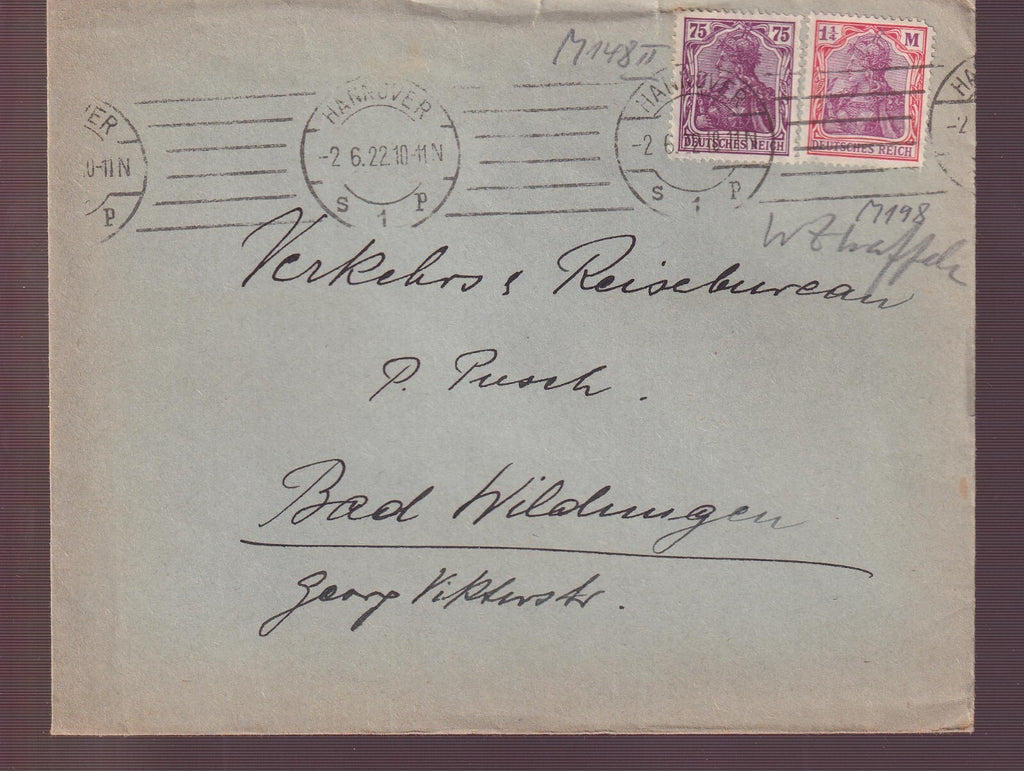 M148 II
75 75
DEUTSCHES REICH
1¼ M
DEUTSCHES REICH
ER
10-11N
P
HANNOVER
-2 6.22.10-11N
S 1 P
HANNOVER
-2 6.22.10-11N
S 1 P
HA
-2
M198
Verkehrs & Reisebureau
P. Pusch.
Bad Wildungen
Georg Viktorstr.